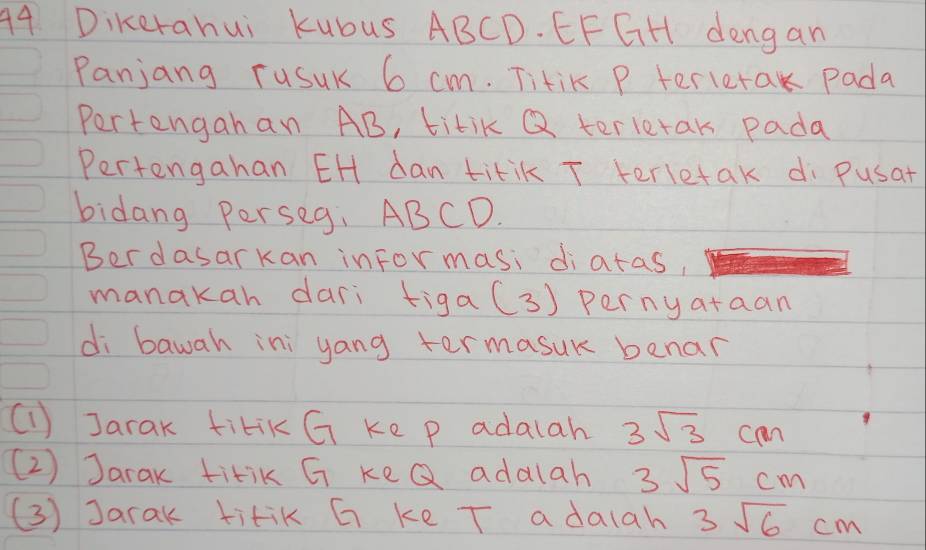 44. Diketahui kubus ABCD.EFGH dengan
Panjang rusuk 6 cm. Titik P terletak pada
Pertengahan AB, titik Q terletak pada
Pertengahan EH dan titik T terletak di pusat
bidang persegi ABCD.
Berdasarkan informasi diatas,
manakah dari tiga (3) pernyataan
di bawah ini yang termasuk benar
(1) Jarak titik G ke P adalah 3√3 cm
(2) Jarak titik G ke Q adalah 3√5 cm
(3) Jarak titik G ke T adalah 3√6 cm